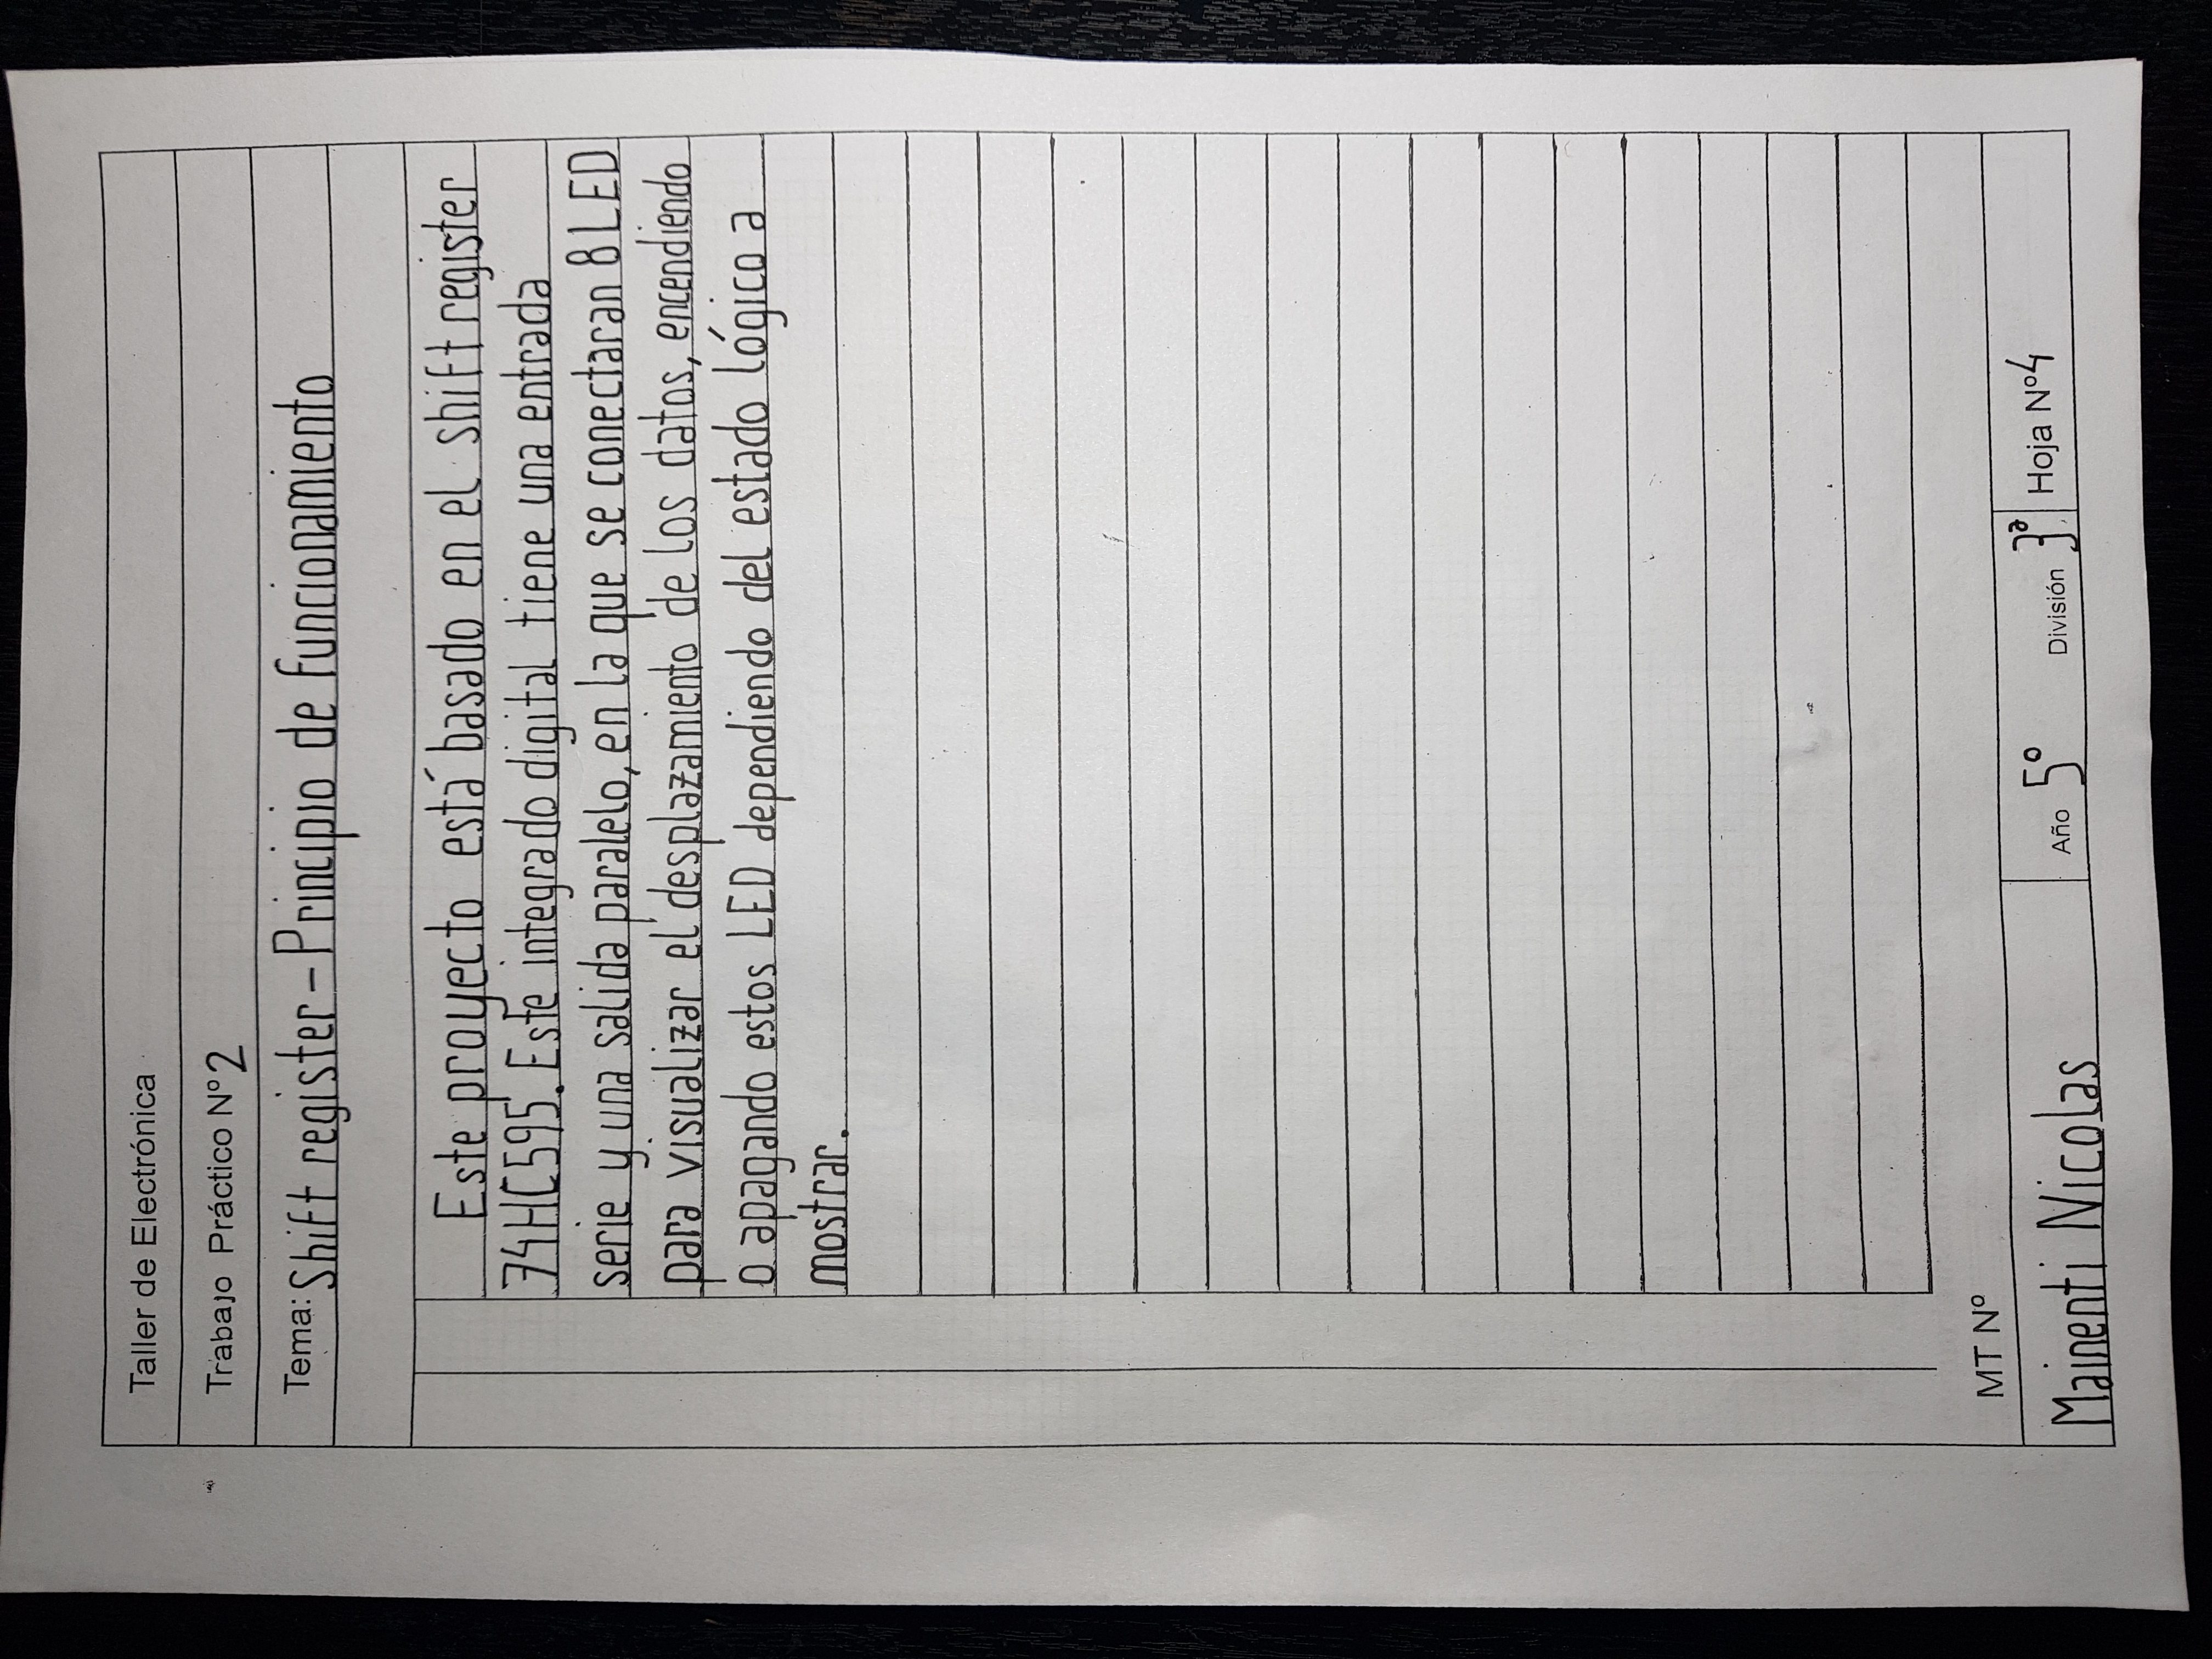 Taller de Electrónica
Trabajo Práctico Nº 2
Tema: Shift register – Principio de funcionamiento
Este proyecto está basado en el shift register
74HC595. Este integrado digital tiene una entrada
serie y una salida paralelo, en la que se conectaran 8 LED
para visualizar el desplazamiento de los datos, encendiendo
o apagando estos LED dependiendo del estado lógico a
mostrar.
MT Nº
Mainenti Nicolas Año 5º División 3ª Hoja Nº 4